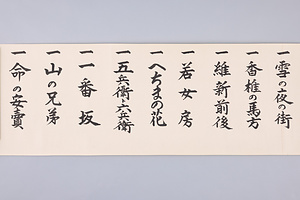 一雪の夜の街
一香椎の馬方
一維新前後
一若女房
一へちまの花
一五兵衛と六兵衛
一一番坂
一山の兄弟
一命の安賣